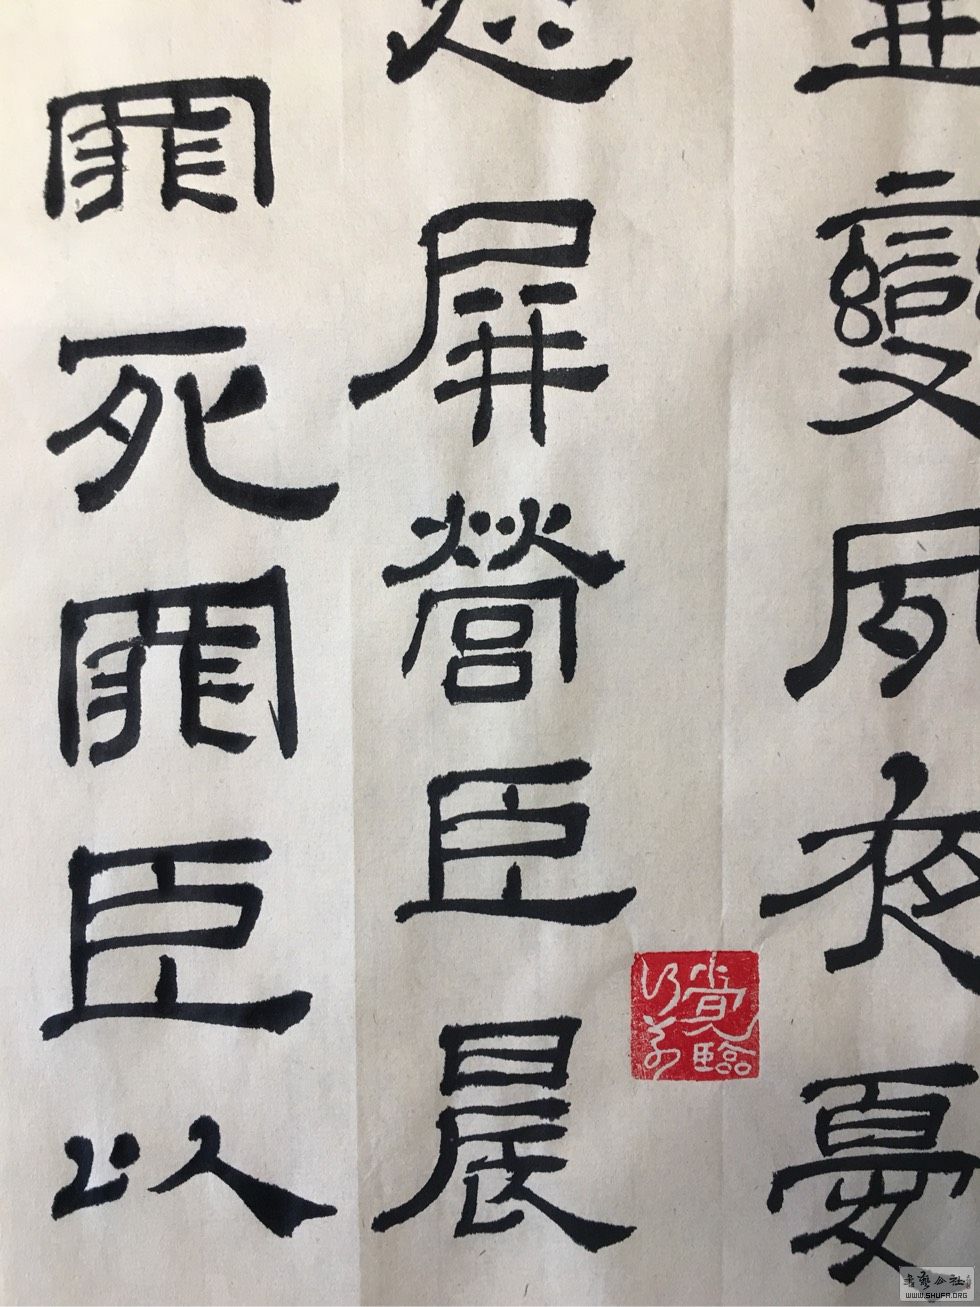 變夙夜憂
屏營臣晨
罪死罪臣以
書藝公社
WWW.SHUFA.ORG